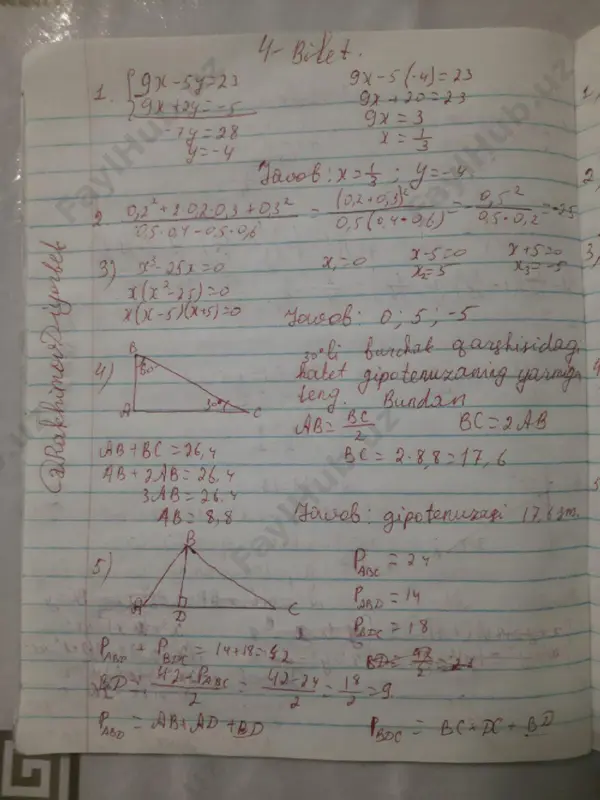 4-Bilet.
1. {9x-5y=23
9x+2y=-5
-7y=28
y=-4
9x-5(-4)=23
9x+20=23
9x=3
x=1/3
Javob: x=1/3; y=-4
2 (0,2²+2·0,2·0,3+0,3²)/(0,5·0,4-0,5·0,6) = (0,2+0,3)²/(0,5(0,4-0,6)) = 0,5²/(0,5·0,2) = -2,5
3) x³-25x=0
x(x²-25)=0
x(x-5)(x+5)=0
x₁=0
x-5=0
x₂=5
x+5=0
x₃=-5
Javob: 0; 5; -5
4) B
60°
A 30° C
30° li burchak qarshisidagi
katet gipotenuzaning yarmiga
teng. Bundan
AB=BC/2 BC=2AB
BC=2·8,8=17,6
AB+BC=26,4
AB+2AB=26,4
3AB=26,4
AB=8,8
Javob: gipotenuzasi 17,6 sm.
5) B
A D C
P_ABC=24
P_ABD=14
P_BDC=18
P_ABD+P_BDC=14+18=42
BD=42/2=21
BD=(42-P_ABC)/2=(42-24)/2=18/2=9
P_ABD=AB+AD+BD
P_BDC=BC+DC+BD
@RakhimovDiyorbek
FaylHub.uz
FaylHub.uz
FaylHub.uz